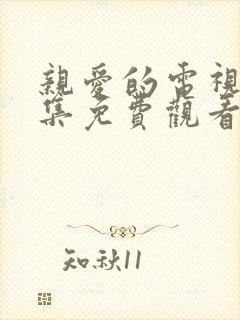 親愛的電視
集免費觀看
知秋11